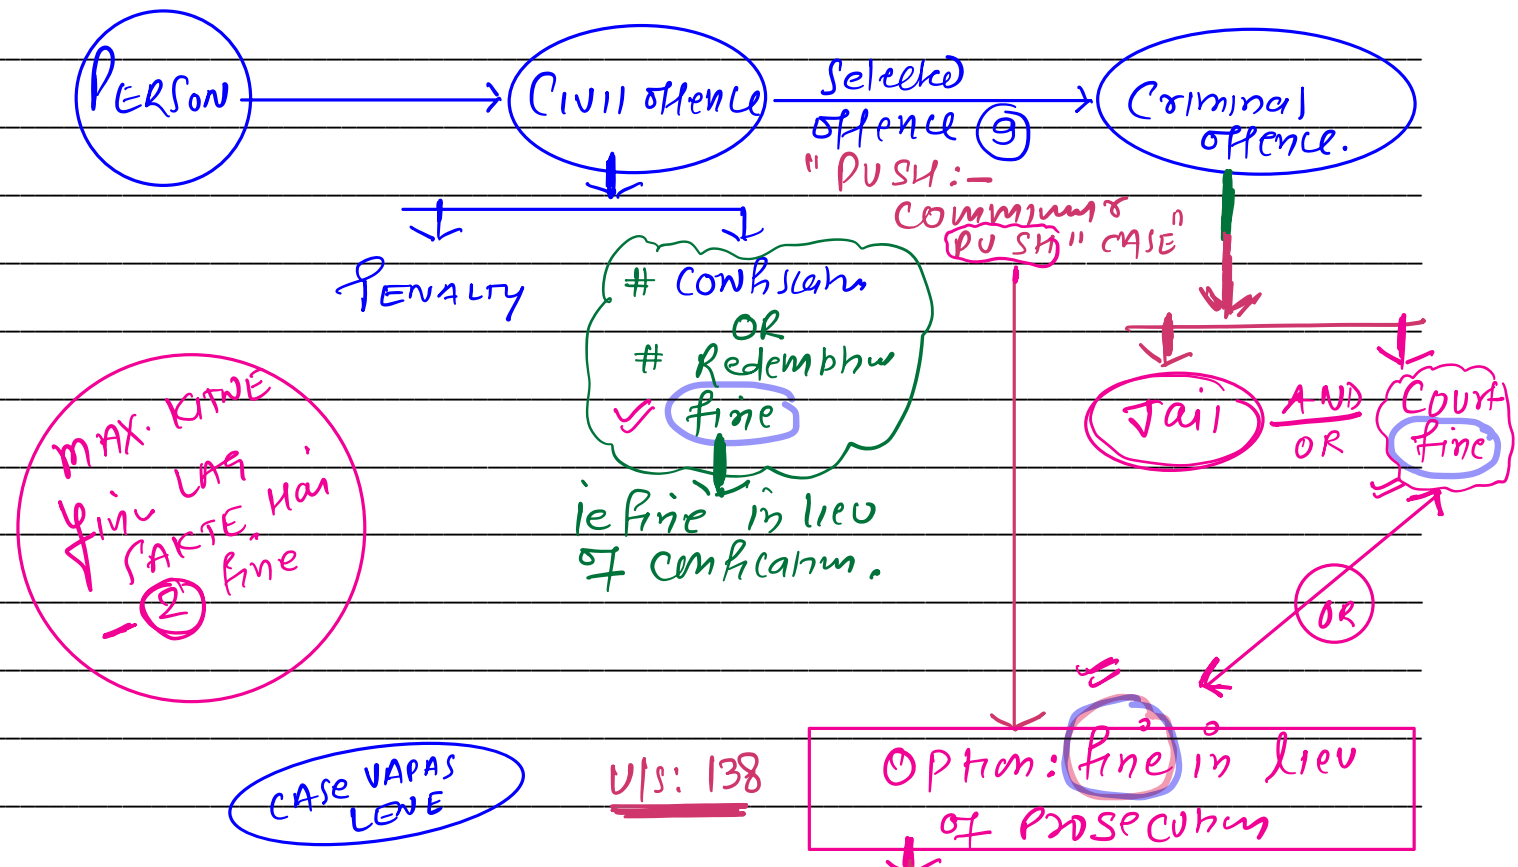 PERSON
CIVIL offence
Selected
offence 9
Criminal
offence.
"PUSH:-
Commissioner
PUSH" CASE"
PENALTY
# Confiscation
OR
# Redemption
fine
ie fine in lieu
of confication.
Jail
AND
OR
Court
fine
MAX. KITNE
fine LAG
SAKTE HAI
fine
- 2
OR
CASE VAPAS
LENE
U/s: 138
Option: fine in lieu
of Prosecution